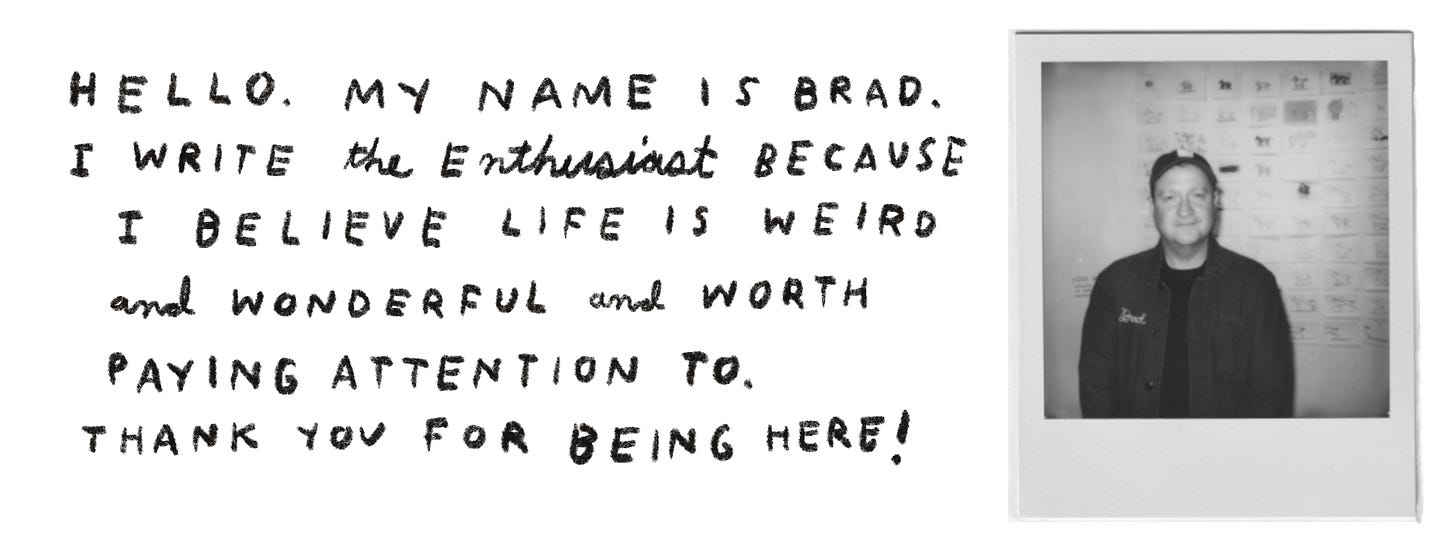 HELLO. MY NAME IS BRAD.
I WRITE the Enthusiast BECAUSE
I BELIEVE LIFE IS WEIRD
and WONDERFUL and WORTH
PAYING ATTENTION TO.
THANK YOU FOR BEING HERE!
Brad